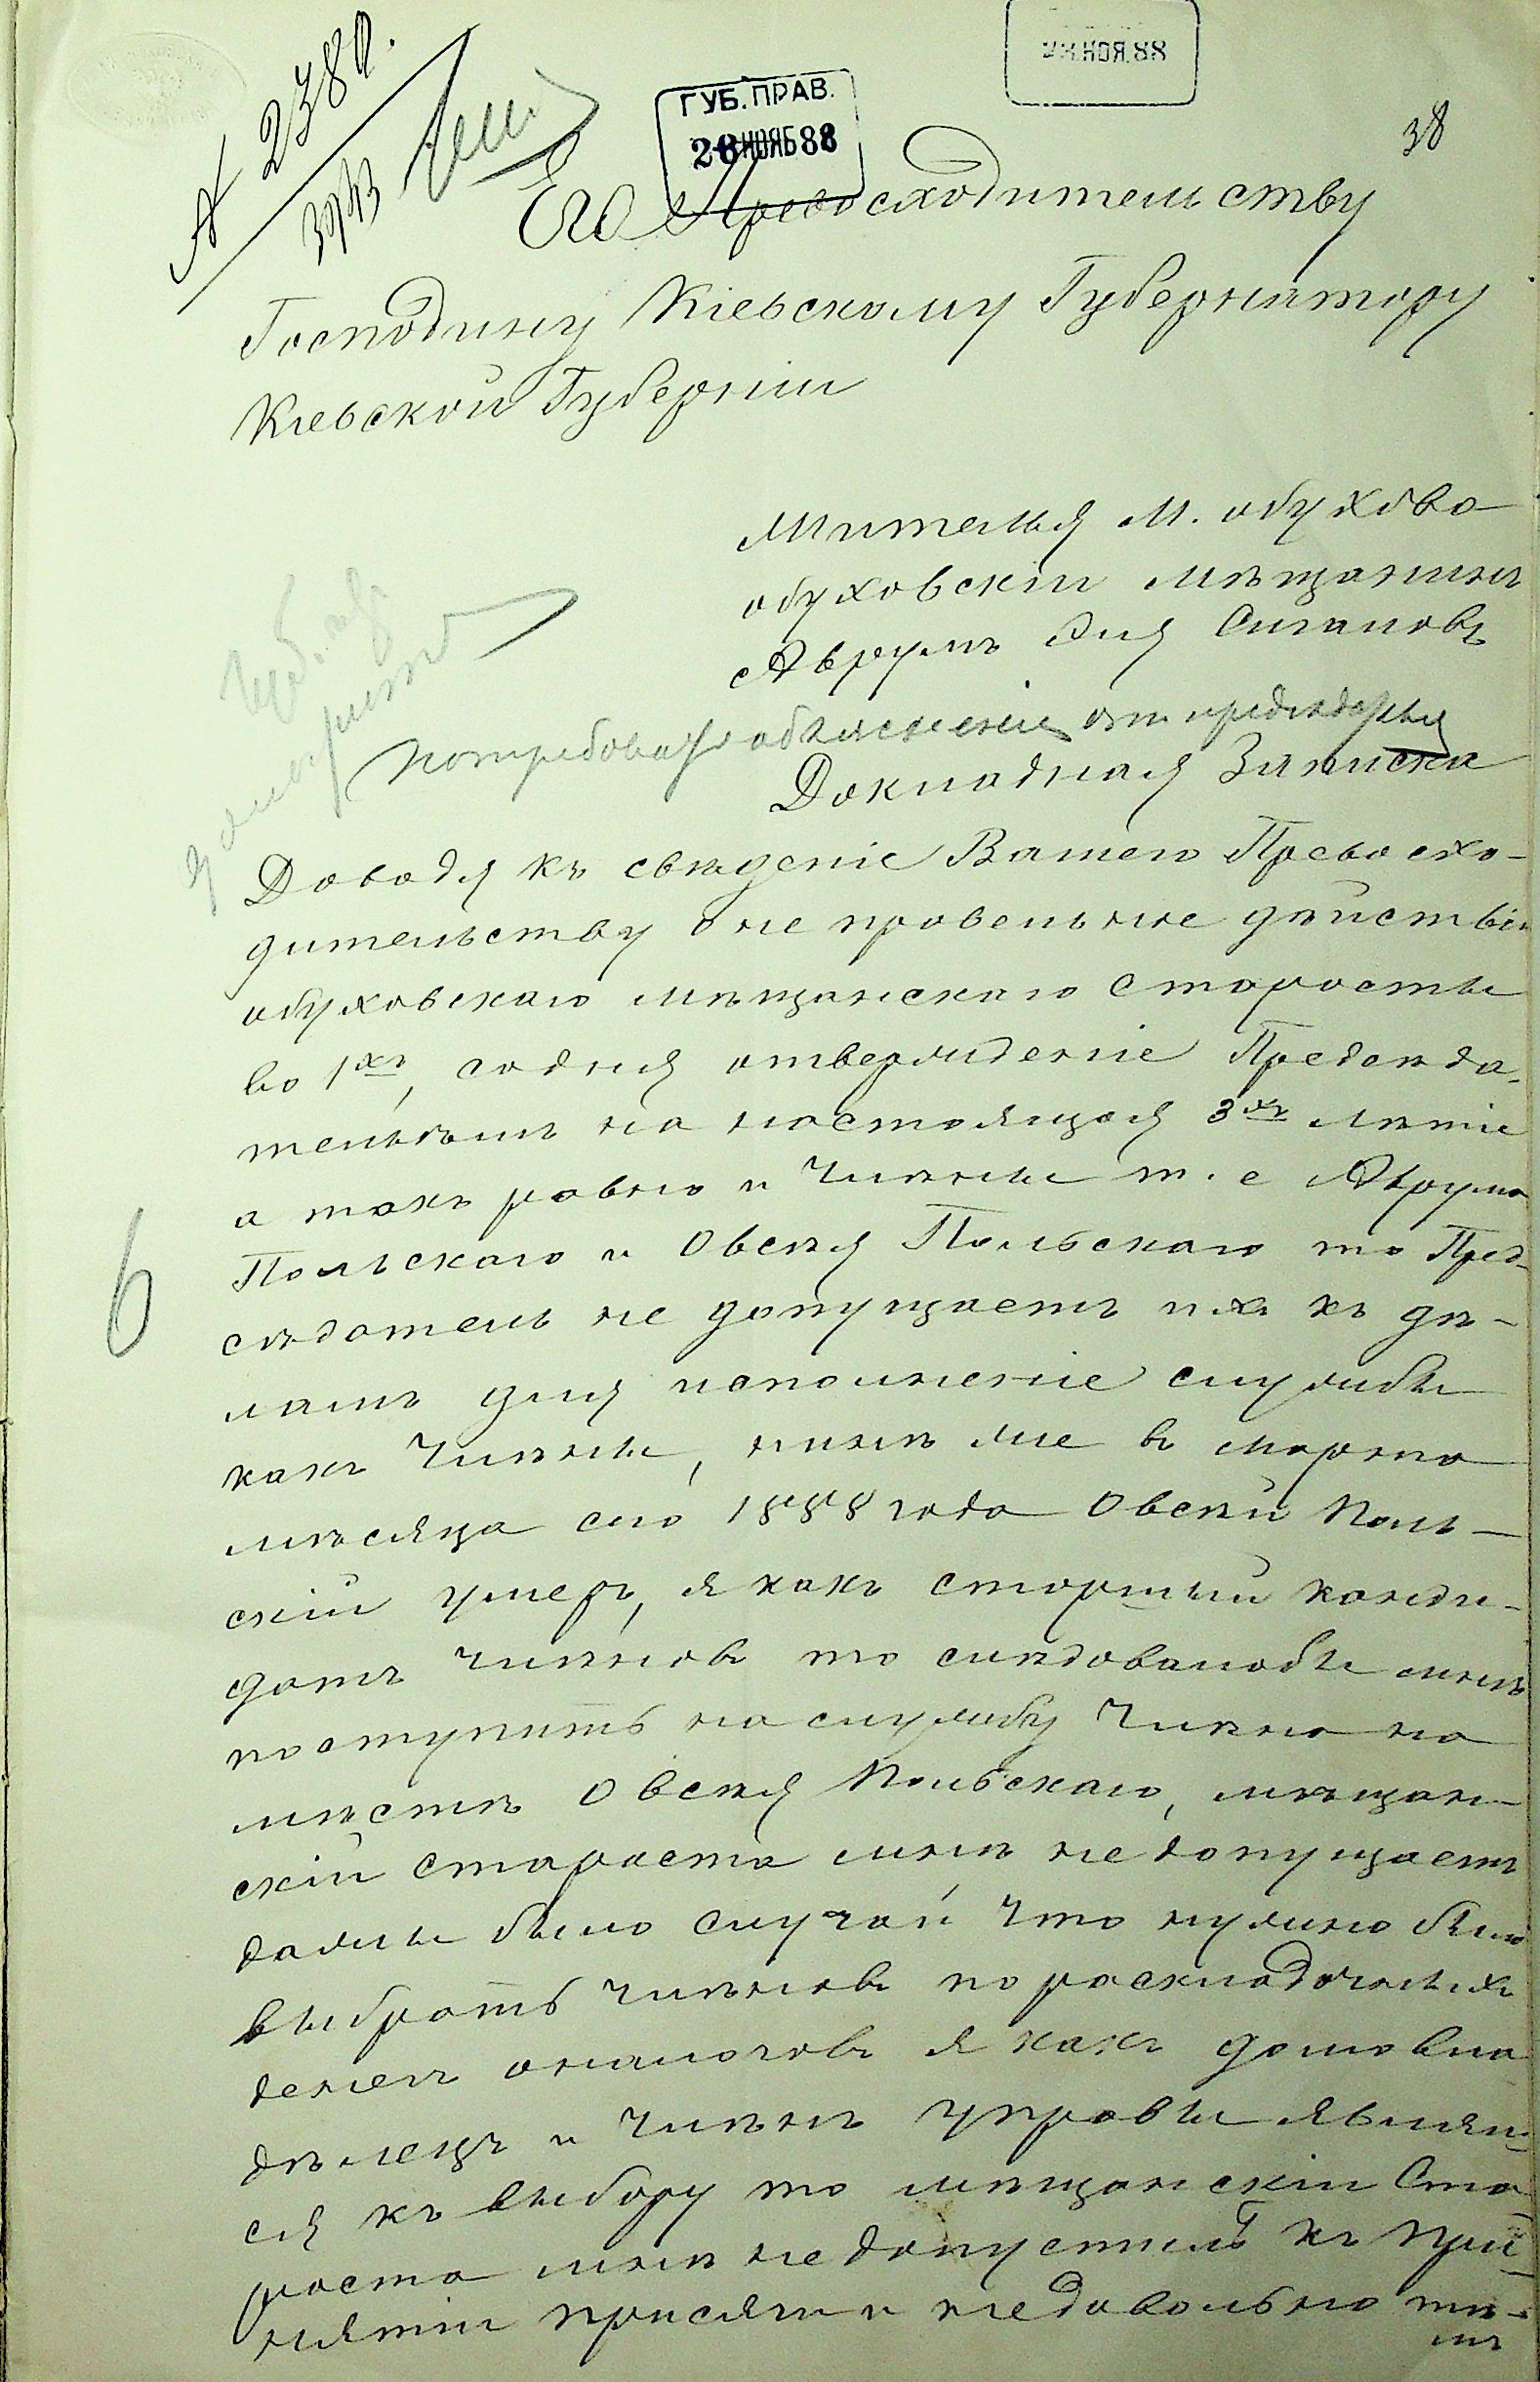 № 2380.
ГУБ. ПРАВ.
28 НОЯБ 88
НОЯ. 88
38
Его Превосходительству
Господину Кіевскому Губернатору
Кіевской Губерніи
Жителья М. обухова
обуховскій мѣщанинъ
Аврумъ Эля
Потребовать объясненіе отъ предсѣдателя
Докладная Записка
Доводя къ свѣденіе Вашего Превосхо-
дительству о не правельные дѣйствіи
обуховскаго мѣщанскаго старосты
во 1хъ, содня отверждение Предсѣда-
тельѣмъ на настоящая 3хъ лѣтіе
а такъ равно и Члѣны т. е Аврума
Польскаго и Овсѣя Польскаго то Пред-
сѣдатель не допущаетъ ихъ къ дѣ-
ламъ для исполненіе службы
какъ Члѣны, нинѣ же въ марта
мѣсяца сего 1888 года Овсѣй Поль-
скій умеръ, я какъ старшый канди-
датъ члѣновъ то слѣдовалобы мнѣ
поступить на службу Члѣна на
мѣстѣ Овсѣя Польскаго, мѣщан-
скій староста мнѣ не допущаетъ
дажы было случай что нужно было
выбрать члѣновъ по раскладочныхъ
денегъ оналоговъ я какъ домовла
дѣлецъ и члѣнъ управы являл
ся къ выбору то мѣщанскій Ста-
роста мнѣ не допустилъ къ при-
нятіи присяги и недовольно тѣ-
мъ
6